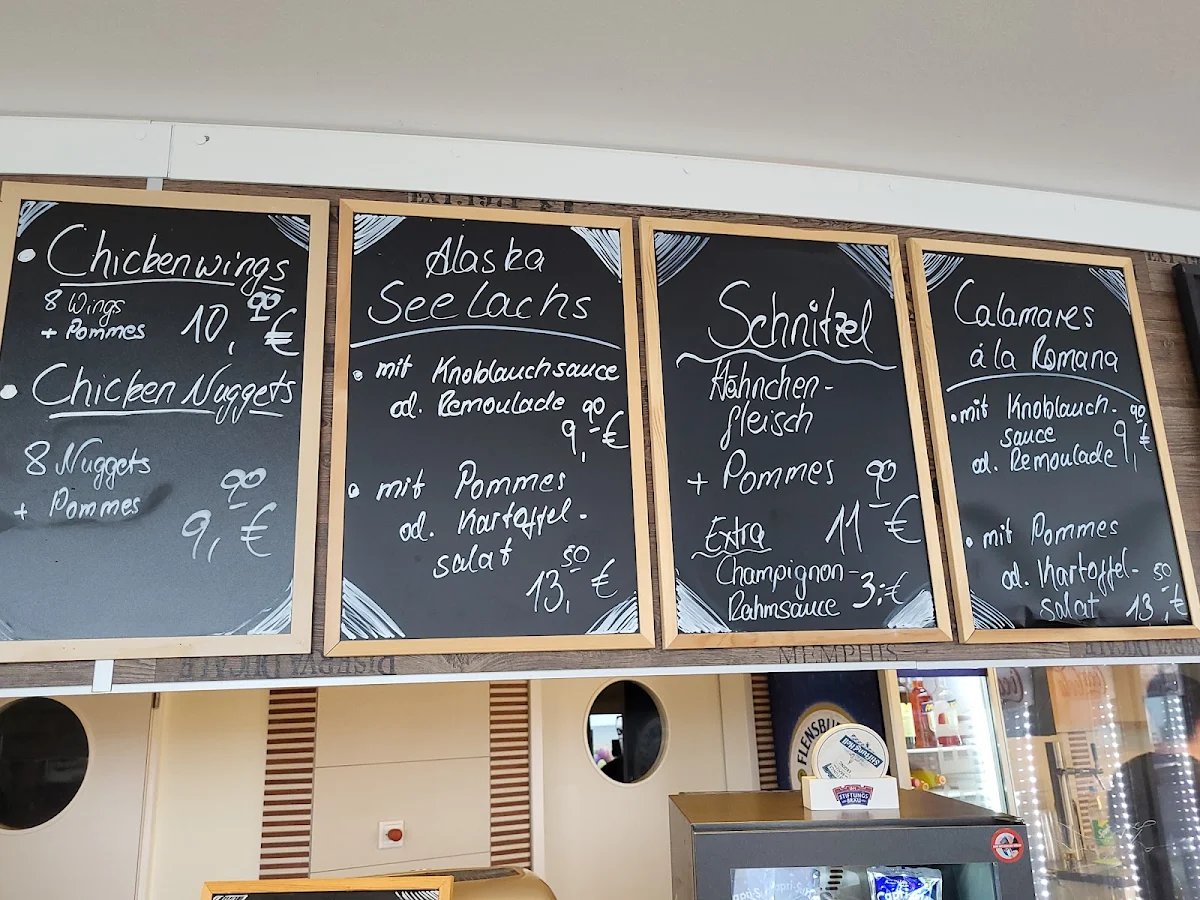 • Chickenwings
8 Wings
+ Pommes 10,90 €
• Chicken Nuggets
8 Nuggets
+ Pommes
9,90 €
Alaska
Seelachs
• mit Knoblauchsauce
od. Remoulade
9,90 €
• mit Pommes
od. Kartoffel-
salat
13,50 €
Schnitzel
Hähnchen-
fleisch
+ Pommes
11,90 €
Extra
Champignon-
Rahmsauce 3,-€
Calamares
á la Romana
• mit Knoblauch-
sauce 9,90 €
od. Remoulade
• mit Pommes
od. Kartoffel-
salat 13,50 €
MEMPHIS
FLENSBU
STIFTUNGS
BRÄU